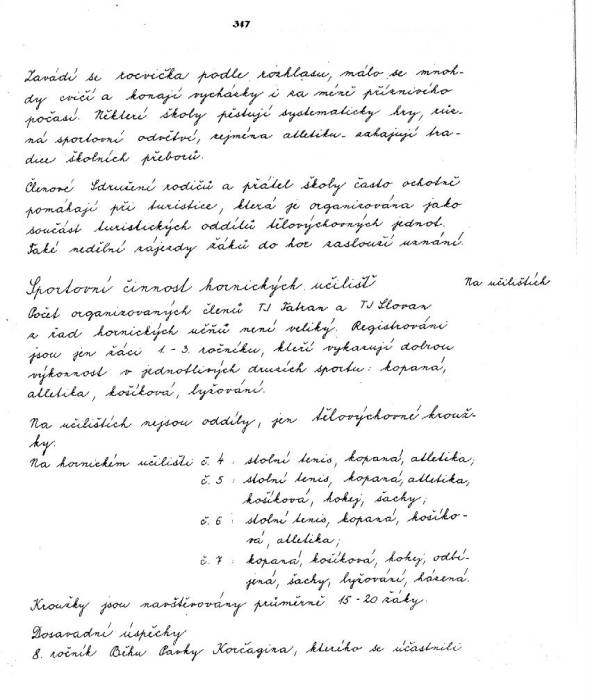 347
Zavádí se rozcvička podle rozhlasu, málo se mnoh-
dy cvičí a konají vycházky i za méně příznivého
počasí. Některé školy pěstují systematicky hry, růz-
ná sportovní odvětví, zejména atletiku - zahajují tra-
dice školních přeborů.
Členové Sdružení rodičů a přátel školy často ochotně
pomáhají při turistice, která je organizována jako
součást turistických oddílů tělovýchovných jednot.
Také nedílní zájezdy žáků do hor zaslouží uznání.
Sportovní činnost hornických učilišť
Na učilištích
Počet organizovaných členů TJ Tatran a TJ Slovan
z řad hornických učňů není veliký. Registrováni
jsou jen žáci 1.-3. ročníku, kteří vykazují dobrou
výkonnost v jednotlivých druzích sportu: kopaná,
atletika, košíková, lyžování.
Na učilištích nejsou oddíly, jen tělovýchovné krouž-
ky.
Na hornickém učilišti č. 4 : stolní tenis, kopaná, atletika;
č. 5 : stolní tenis, kopaná, atletika,
košíková, hokej, šachy;
č. 6 : stolní tenis, kopaná, košíko-
vá, atletika;
č. 7 : kopaná, košíková, hokej, odbí-
jená, šachy, lyžování, házená.
Kroužky jsou navštěvovány průměrně 15-20 žáky.
Dosavadní úspěchy
8. ročník Běhu Pavky Korčagina, kterého se účastnili